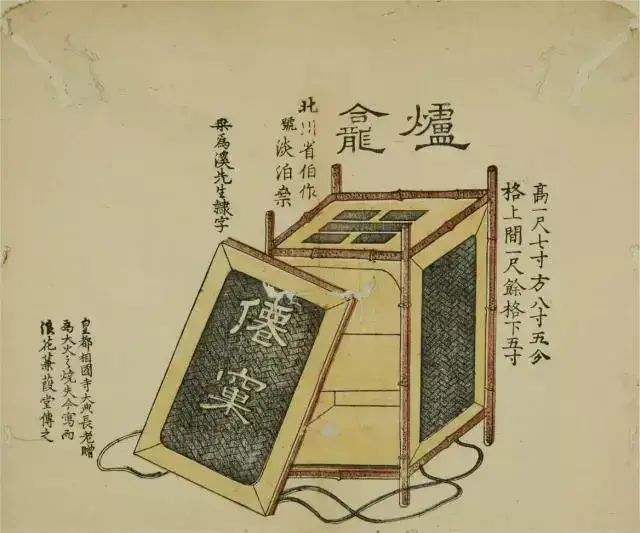 爐龕
高一尺七寸方八寸五分
格上間一尺餘格下五寸
北川省伯作
號淡泊
為溪先生隷字
僊窠
皇都相國寺大典長老贈
為大火之燒失今寫而
浪花蒹葭堂傳之